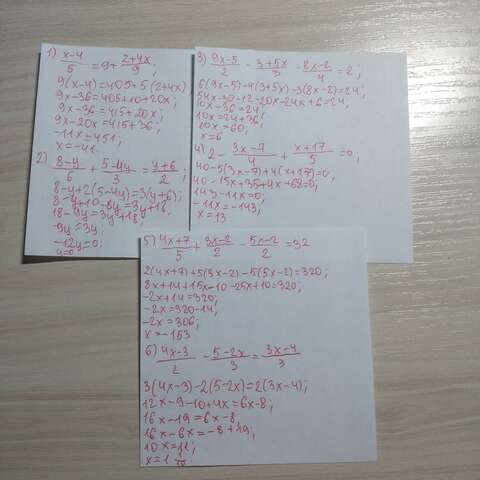 1) (x-4)/5 = 9 + (2+4x)/9
9(x-4)=405+5(2+4x)
9x-36=405+10+20x;
9x-36=415+20x;
9x-20x=415+36;
-11x=451;
x=-41.
2) (8-y)/6 + (5-4y)/3 = (y+6)/2;
8-y+2(5-4y)=3(y+6);
8-y+10-8y=3y+18;
18-9y=3y+18;
-9y=3y;
-12y=0;
y=0
3) (9x-5)/2 - (3+5x)/3 - (8x-2)/4 = 2;
6(9x-5)-4(3+5x)-3(8x-2)=24;
54x-30-12-20x-24x+6=24;
10x-36=24;
10x=24+36;
10x=60;
x=6
4) 2 - (3x-7)/4 + (x+17)/5 = 0;
40-5(3x-7)+4(x+17)=0;
40-15x+35+4x+68=0;
143-11x=0;
-11x=-143;
x=13
5) (4x+7)/5 + (3x-2)/2 - (5x-2)/2 = 32
2(4x+7)+5(3x-2)-5(5x-2)=320;
8x+14+15x-10-25x+10=320;
-2x+14=320;
-2x=320-14;
-2x=306;
x=-153
6) (4x-3)/2 - (5-2x)/3 = (3x-4)/3
3(4x-3)-2(5-2x)=2(3x-4);
12x-9-10+4x=6x-8;
16x-19=6x-8
16x-6x=-8+19;
10x=11;
x=1 1/10